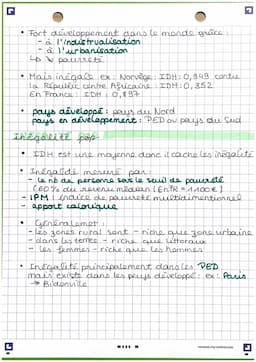 • Fort développement dans le monde grâce :
- à l'industrialisation
- à l'urbanisation
↳ ↘ pauvreté
• Mais inégale ex : Norvège : IDH : 0,949 contre
la République centre Africaine : IDH : 0,352
En France : IDH : 0,897
• pays développé : pays du Nord
pays en développement : PED ou pays du Sud
Inégalité pop
• IDH est une moyenne donc il cache les inégalités
• Inégalité mesuré par :
- le nb de personne sous le seuil de pauvreté
(60% du revenu médian
- IPM : indice de pauvreté multidimentionnel
- apport calorique
• Généralement :
- les zones rural sont - riche que zone urbaine
- dans les terres - riche que littoraux
- les femmes - riche que les hommes
• Inégalité principalement dans les PED
mais existe dans les pays développé : ex : Paris
→ Bidonville